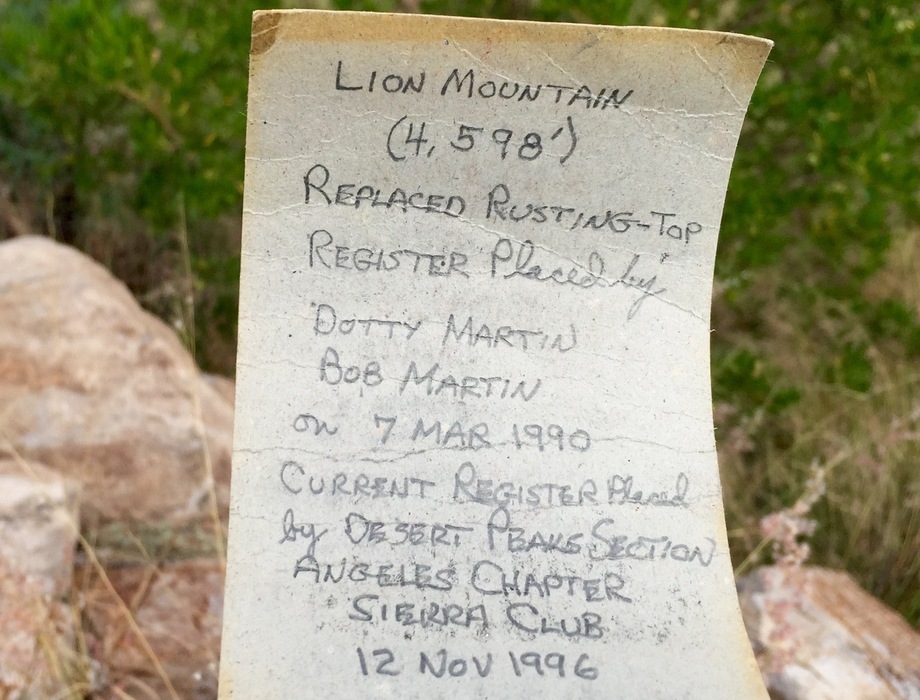 LION MOUNTAIN
(4,598')
REPLACED RUSTING-TOP
REGISTER Placed by
DOTTY MARTIN
BOB MARTIN
on 7 MAR 1990
CURRENT REGISTER Placed
by DESERT PEAKS SECTION
ANGELES CHAPTER
SIERRA CLUB
12 NOV 1996